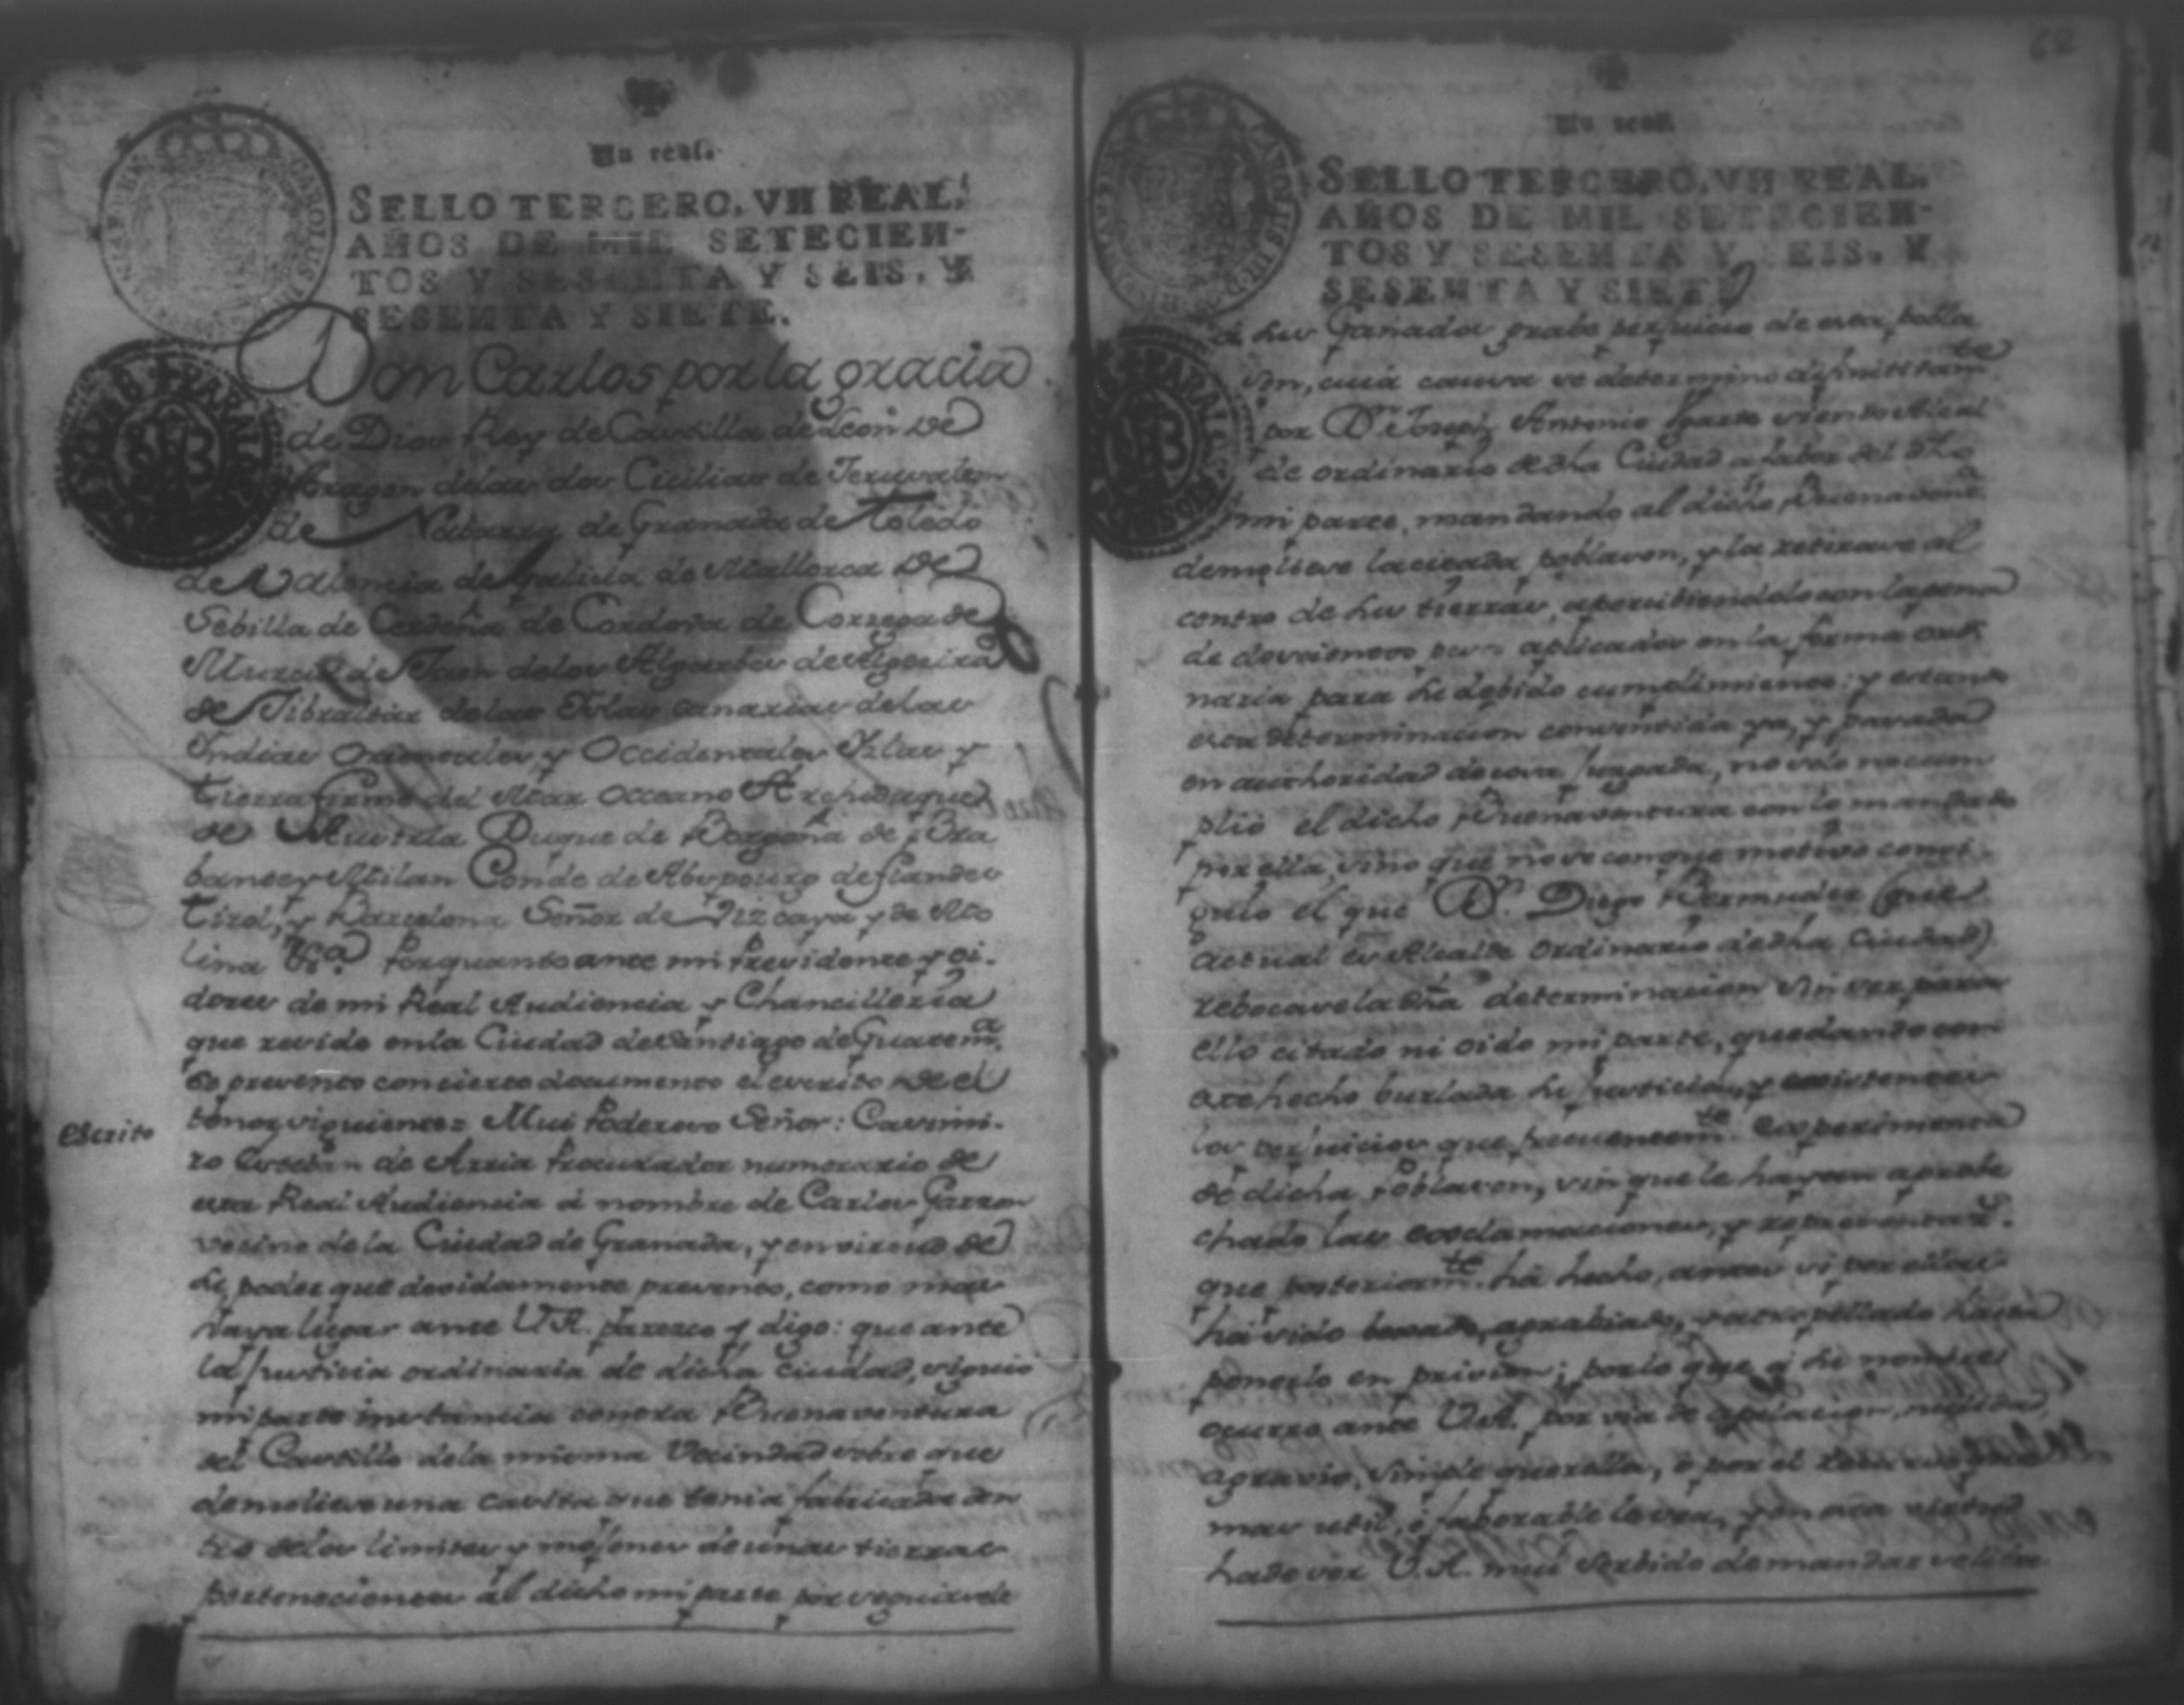 Un real.
SELLO TERCERO, VN REAL,
AÑOS DE MIL SETECIEN-
TOS Y SESENTA Y SEIS, Y
SESENTA Y SIETE.
Don Carlos por la gracia
de Dios Rey de Castilla de Leon de
Aragon delas dos Cicilias de Jerusalen
de Nabarra de Granada de Toledo
de Valencia de Galicia de Mallorca de
Sebilla de Cerdeña de Cordova de Corsega de
Murcia de Jaen delos Algarbes de Algecira
de Jibraltar delas Yslas canarias delas
Yndias Orientales y Occidentales Yslas y
tierra firme del Mar Occeano Archiduque
de Austria Duque de Borgoña de Bra
bante y Milan Conde de Abspourg de flandes
tirol, y Barcelona Señor de Vizcaya y de Mo
lina &ca. Por quanto ante mi Presidente y oi-
dores de mi Real Audiencia y Chancilleria
que reside en la Ciudad de Santiago de Guatema
se presento con cierto documento el escrito de el
escrito
tenor siguiente= Mui Poderoso Señor: Casimi-
ro Esteban de Arria Procurador numerario de
esta Real Audiencia á nombre de Carlos Garzon
vecino de la Ciudad de Granada, y en virtud de
su poder que devidamente presento, como mas
haya lugar ante V.A. paresco y digo: que ante
la Justicia ordinaria de dicha ciudad, siguio
mi parte instancia contra Buenaventura
del Castillo dela misma Vecindad sobre que
demoliese una casita que tenia fabricada den
tro delos limites y mojones de unas tierras
pertenecientes al dicho mi parte por seguirsele
62
Un real
SELLO TERCERO, VN REAL,
AÑOS DE MIL SETECIEN-
TOS Y SESENTA Y SEIS, Y
SESENTA Y SIETE
á su Ganado grabe perjuicio de esta pobla
son, cuia causa se determino definitivamte
por Dn. Joseph Antonio Ugarte siendo Alcal
de ordinario de dha Ciudad a fabor del dho
mi parte, mandando al dicho Buenaventa
demoliese la citada poblason, y la retirase al
centro de sus tierras, apercibiendolo con la pena
de doscientos aplicados en la forma ordi
naria para su debido cumplimiento: y estando
esta determinacion consentida ya, y pasada
en authoridad de cosa jusgada, no solo no cum
plio el dicho Buenaventura con lo mandado
por ella, sino que no se con que motivo consi
guio el que Dn. Diego Bermudez (que
actual es Alcalde ordinario de dha Ciudad)
rebocase la dha determinacion sin ser para
ello citado ni oido mi parte, quedando con
este hecho burlada su justicia, y existentes
los perjuicios que frecuentemte. experimenta
de dicha Poblason, sin que le hayan aprobe
chado las exclamaciones, y representas.
que posteriormte. há hecho, antes si por ellas
há sido agrabiado, y atropellado hasta
ponerlo en prision; por lo que á su nombre
ocurro ante V.A. por via de apelacion, nulidad,
agravio, simple querella, ó por el recurso que
mas util, ó faborable le sea, y en su virtud
hade ser V.A. mui serbido de mandar se libre